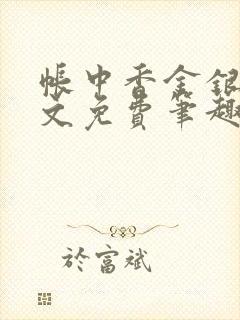 帐中香金银
文免费笔趣
於富斌